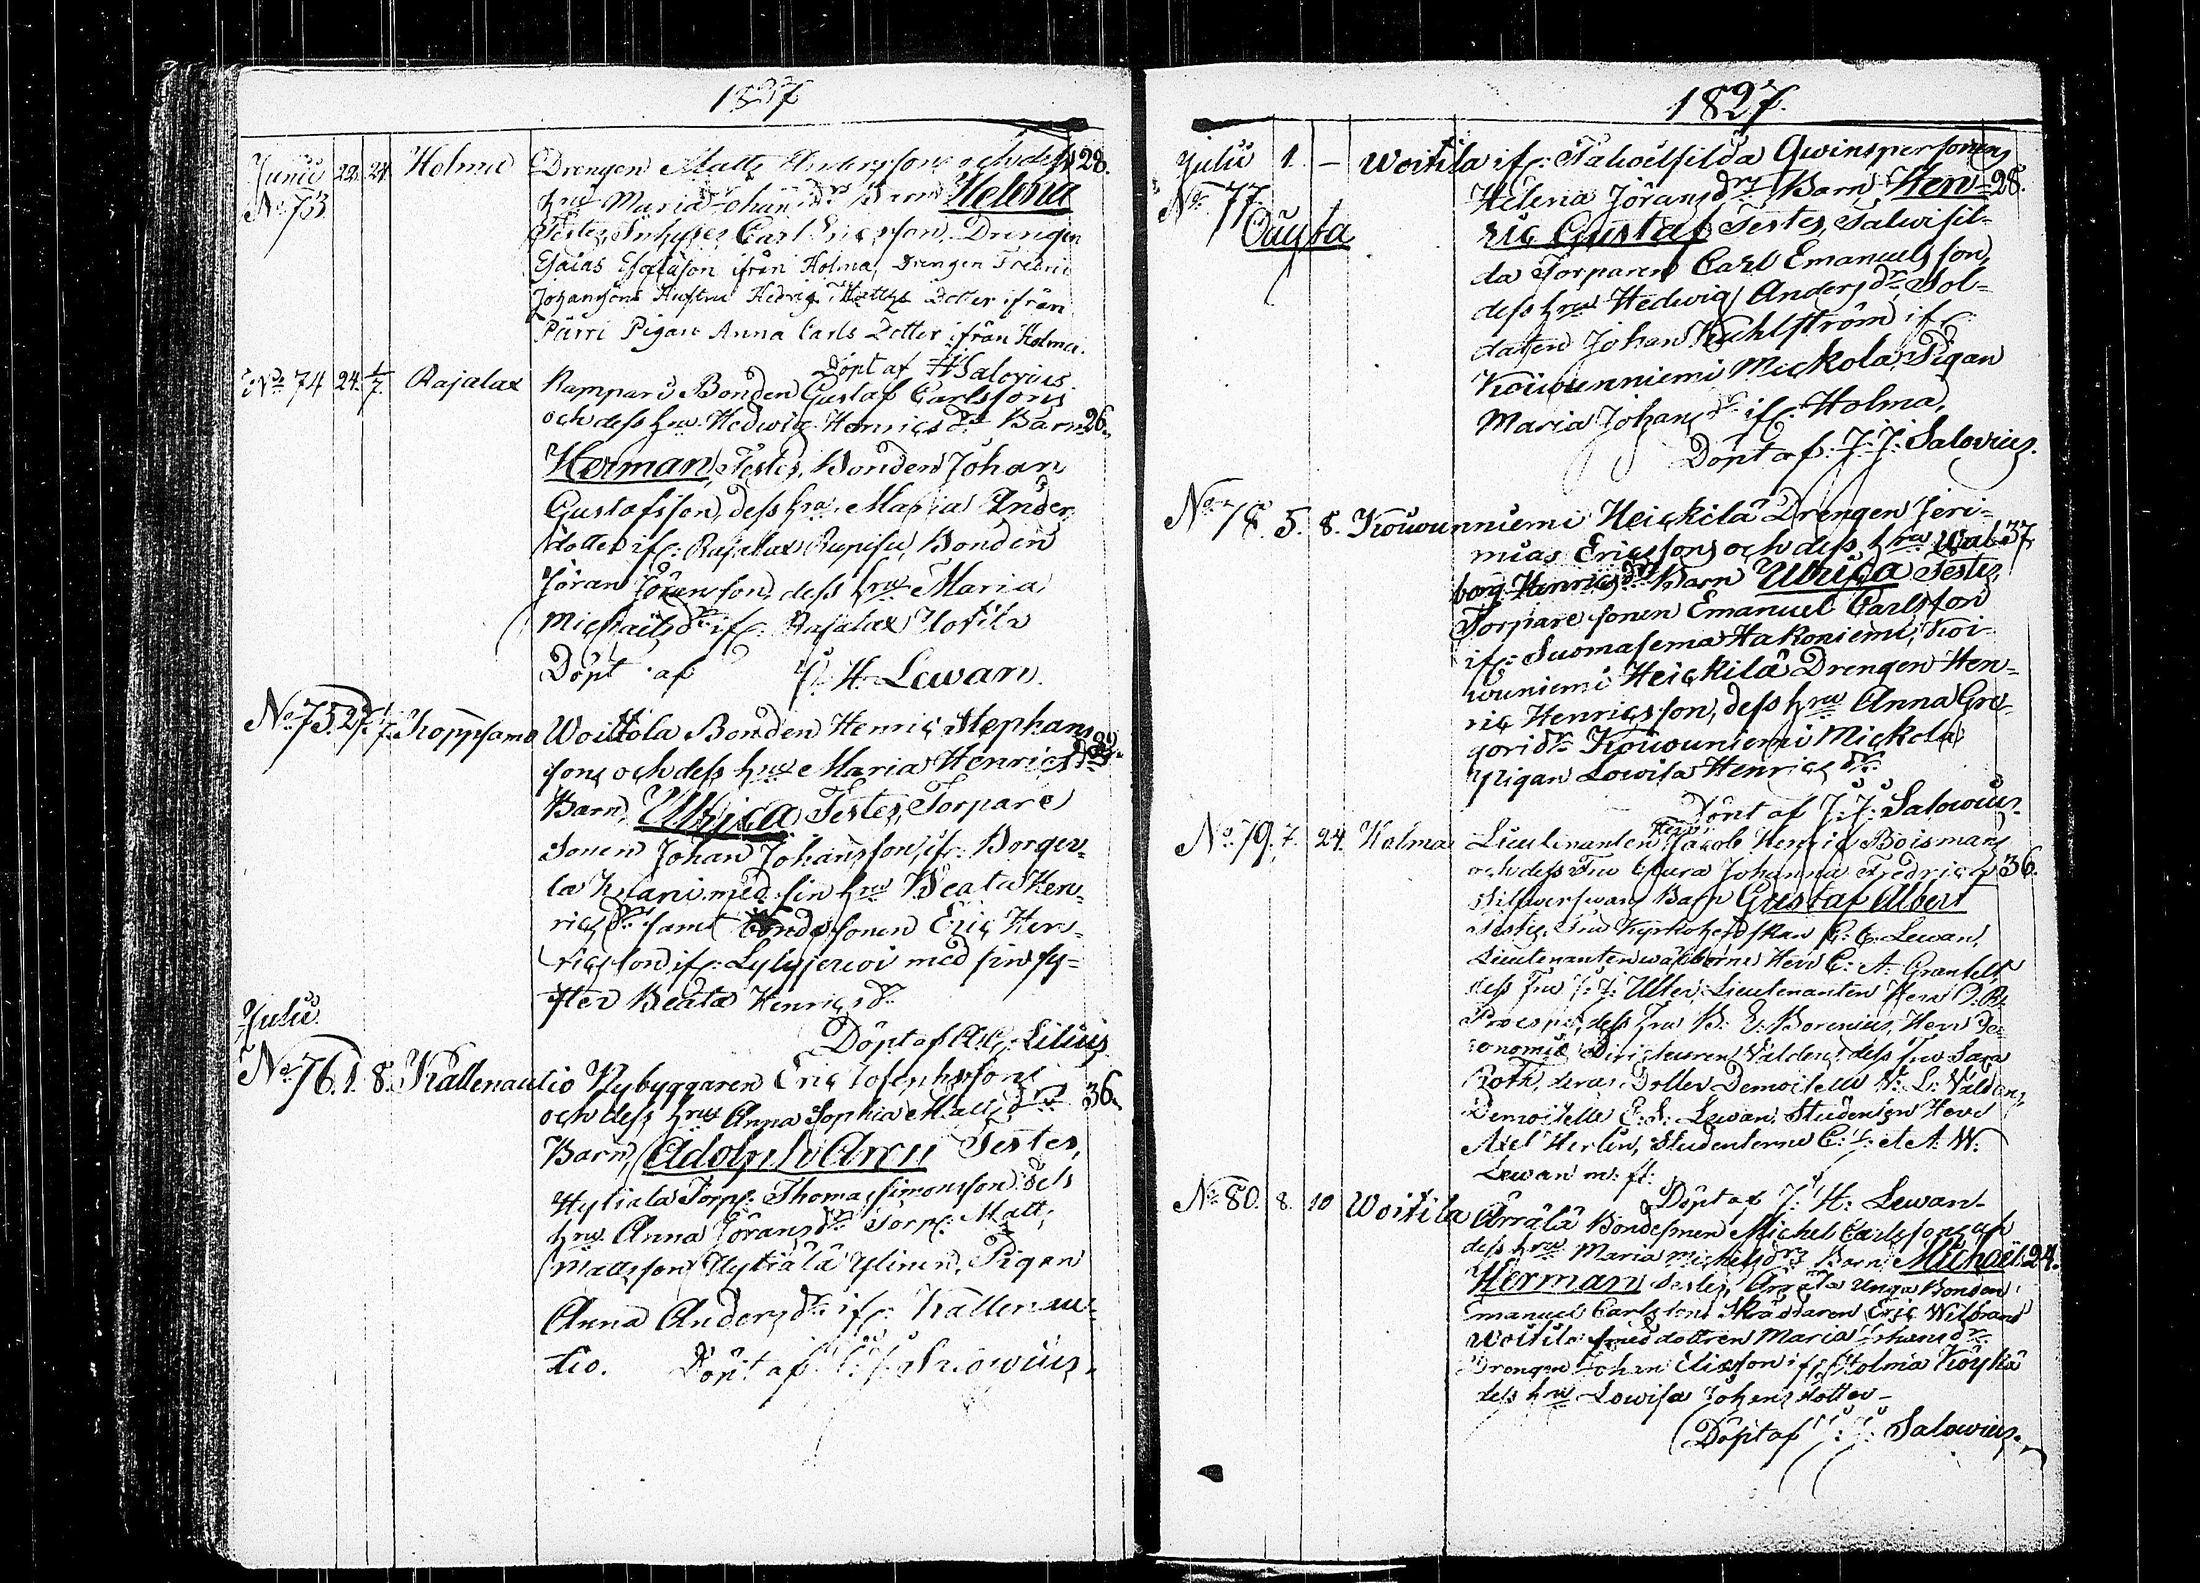 1827
Junii 22. 24. Holma Drengen Matts Andersons och dess 28.
No 73 hru Maria Johansdr Barn Helena
Testes, Inhyses Carl Ericsson, Drengen
Esaias Esaiasson ifrån Holma, Drengen
Johansons Hustru Hedvig Matts Dotter ifrån
Pärri Pigan Anna Carls Dotter ifrån Holma.
Döpt af Salovius
No 74 24. 1/7. Rajalax Bonden Gustaf Carlssons
och dess hru Hedwig Henricsdrs Barn 26.
Herman, Testes, Bonden Johan
Gustafsson, dess hru Maria Anders
dotter ifr: Rajalax Bonden
Jöran Jöransson, dess hru Maria
Michaelsdr ifr: Rajalax Uotila
Döpt af J. H. Lewan.
No 75. 27. 1/7. Koppsamo Woitola Bonden Henric Stephans
sons och dess hru Maria Henricsdrs
Barn, Ulrica Testes, Torpare
Sonen Johan Johansson, ifr: Borger-
la med sin hru Beata Hen-
ricsdr samt Bondesonen Eric Hen-
ricsson, ifr: Lylyjerwi med sin sy-
ster Beata Henricsdr
Döpt af Lilius
Julii
No 76. 1. 8. Källenautio Nybyggaren Eric
och dess hru Anna Sophia Mattsdrs 36.
Barn, Adolph Testes,
Hytiala Torp: Thomas Simonsson dess
hru Anna Jöransdr Torp: Matts
Mattsson Hytiälä Ylinen, Pigan
Anna Andersdr ifr: Källenau-
tio. Döpt af J: J: Salowius.
1827.
Julii 1. – Woitila ifr: Qwinspersonens
No 77. Helena Jöransdrs Barn, Hen- 28.
Oäyta ric Gustaf Testes, Talwisil-
da Torparen Carl Emanuelsson,
dess hru Hedwig Andersdr, Sol-
daten Johan ifr:
Kouwunniemi Mickola, Pigan
Maria Johansdr ifr: Holma,
Döpt af: J: J: Salovius.
No 78. 5. 8. Kouwunniemi Heickilä Drengen Jeri-
mias Ericssons och dess hru Wal- 37
borg Henricsdrs Barn Ulrica Testes,
Torpare sonen Emanuel Carlsson
ifr: Suomasema Hakoniemi, Koi-
wuniemi Heickilä Drengen Hen-
ric Henricsson, dess hru Anna Gre-
goridr Kouwuniemi Mickola
Pigan Lowisa Henricsdr
Döpt af J: J: Salowius.
No 79. 7. 24. Holma Lieutenanten Herr Jacob Henric Boismans
och dess Fru Clara Johanna Fredrica 36.
Silfwersvans Barn Gustaf Albert
Testes, Fru Kyrkoherdskan C: C: Lewan,
Lieutenanten wälborne Herr C: A: Granfelt
dess Fru Lieutenanten Herr
dess hru B: E: Borenius, Herr Oe-
conomie Directeuren Walden, dess Fru Sara
Roth, deras Dotter Demoiselle Walden,
Demoiselle E: S: Lewan, Studenten Herr
Axel Herlin, Studenterne C: et A: W:
Lewan m: fl:
Döpt af J: H: Lewan.
No 80. 8. 10 Woitila Ärrälä Bondesonen Michel Carlssons och
dess hru Maria Michelsdrs Barn Michael 24.
Herman Testes, Unga Bonden
Emanuel Carlsson, Skräddaren Eric Wilbrand
Woitila Smeddottren Maria Johansdr
Drengen Johan Eliasson ifr: Holma Köykä
dess hru Lowisa Johans dotter –
Döpt af J: J: Salowius.